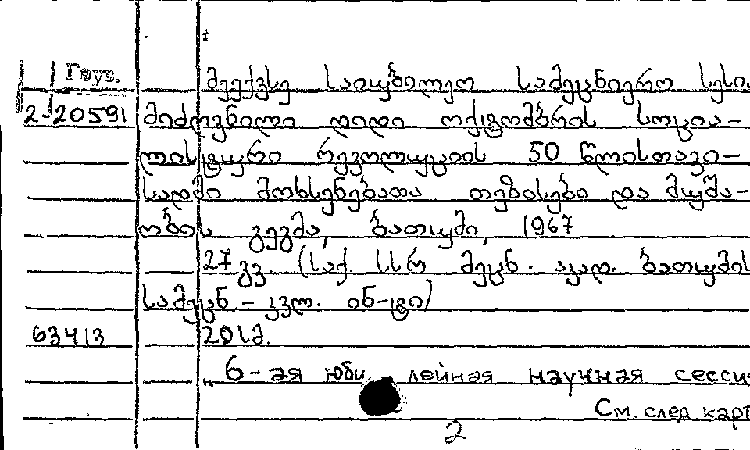 Груз. მეექვსე საიუბილეო სამეცნიერო სესია
2-20591 მიძღვნილი დიდი ოქტომბრის სოცია-
ლისტური რევოლუციის 50 წლისთავი-
სადმი მოხსენებათა თეზისები და მუშა-
ობის გეგმა, ბათუმი, 1967
27 გვ. (საქ სსრ მეცნ. აკად. ბათუმის
სამეცნ - კვლ. ინ-ტი)
63413 2013.
6-ая юбилейная научная сессия
См. след карт
2